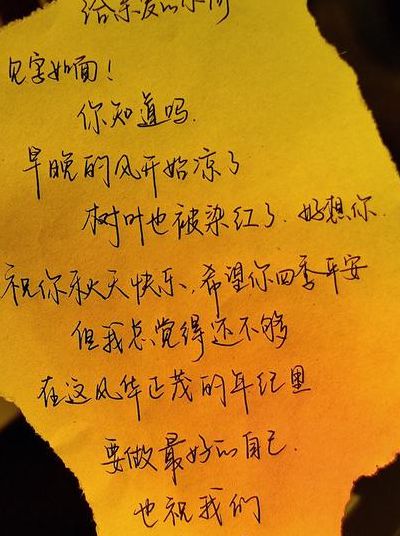 给亲爱的你们
见字如面！
你知道吗.
早晚的风开始凉了
树叶也被染红了.好想你.
祝你秋天快乐,希望你四季平安
但我总觉得还不够
在这风华正茂的年纪里
要做最好的自己.
也祝我们